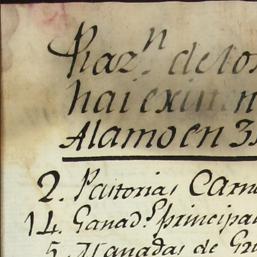 Razn de los
hai existen
Alamo en 31
2. Pastorias Carn
14. Ganads principa
5. Manadas de Gr